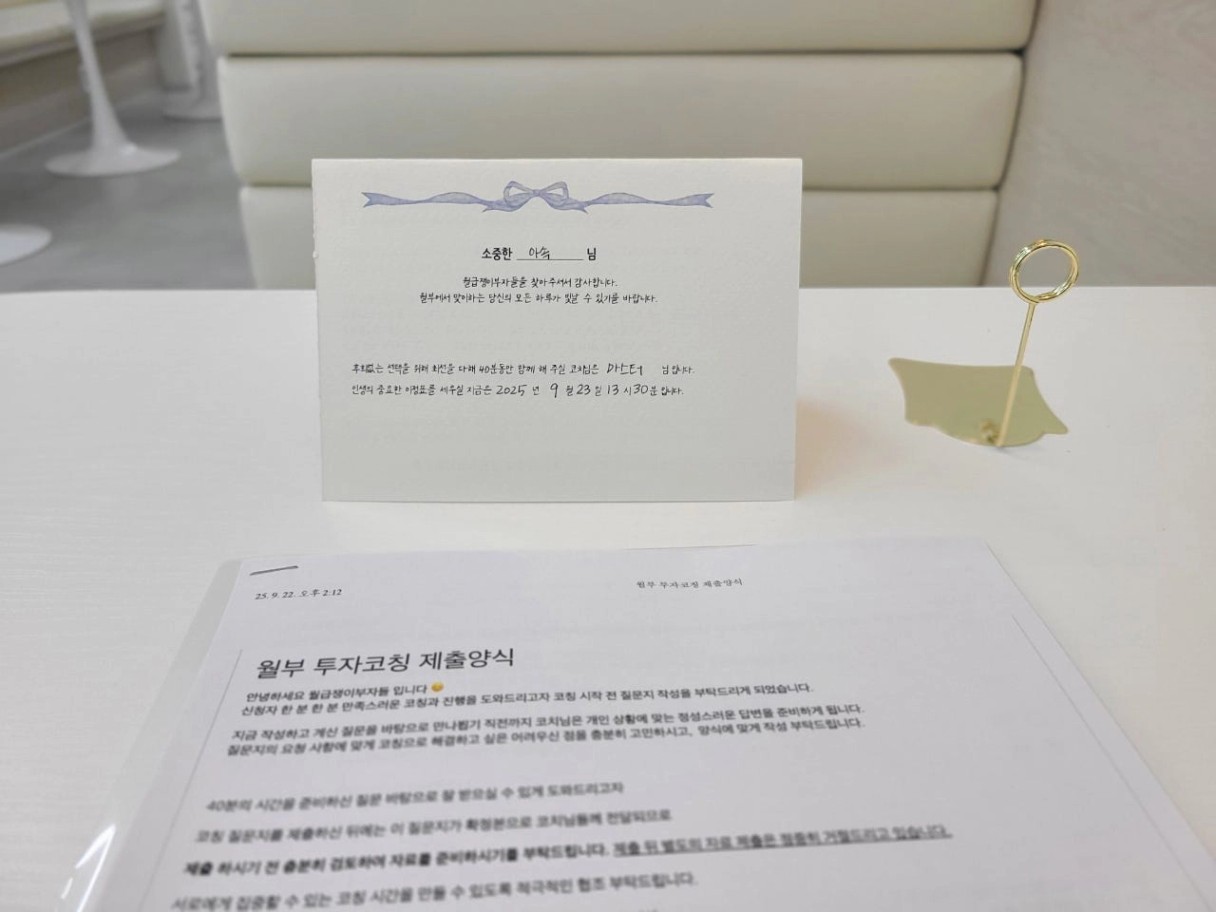 소중한 아속 님
월급쟁이부자들을 찾아주셔서 감사합니다.
월부에서 맞이하는 당신의 모든 하루가 빛날 수 있기를 바랍니다.
후회없는 선택을 위해 최선을 다해 40분동안 함께 해 주실 코치님은 마스터 님 입니다.
인생의 중요한 이정표를 세우실 지금은 2025 년 9 월 23 일 13 시 30 분 입니다.
25. 9. 22. 오후 2:12
월부 투자코칭 제출양식
월부 투자코칭 제출양식
안녕하세요 월급쟁이부자들 입니다 😊
신청자 한 분 한 분 만족스러운 코칭과 진행을 도와드리고자 코칭 시작 전 질문지 작성을 부탁드리게 되었습니다.
지금 작성하고 계신 질문을 바탕으로 만나뵙기 직전까지 코치님은 개인 상황에 맞는 정성스러운 답변을 준비하게 됩니다.
질문지의 요청 사항에 맞게 코칭으로 해결하고 싶은 어려우신 점을 충분히 고민하시고, 양식에 맞게 작성 부탁드립니다.
40분의 시간을 준비하신 질문 바탕으로 잘 받으실 수 있게 도와드리고자
코칭 질문지를 제출하신 뒤에는 이 질문지가 확정본으로 코치님들께 전달되므로
제출 하시기 전 충분히 검토하여 자료를 준비하시기를 부탁드립니다. 제출 뒤 별도의 자료 제출은 정중히 거절드리고 있습니다.
서로에게 집중할 수 있는 코칭 시간을 만들 수 있도록 적극적인 협조 부탁드립니다.